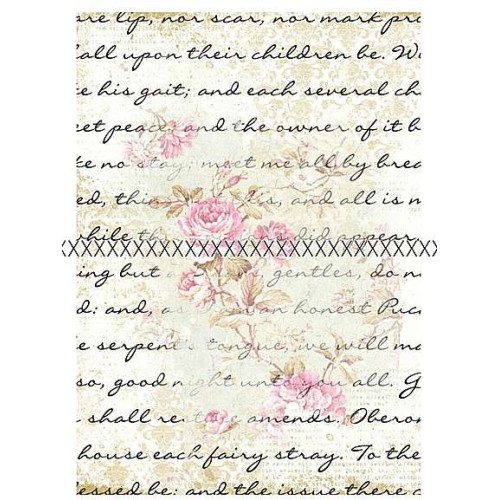 are lip, nor scar, nor mark pro
all upon their children be. W
his gait; and each several ch
et peace; and the owner of it b
no stay; meet me all by brea
ed, and all is m
hile did appear
ing but gentles, do n
d: and, as an honest Puc
serpent's tongue, we will ma
so, good night unto you all. G
shall restore amends. Obero
house each fairy stray. To the
essed be: and the issue there c